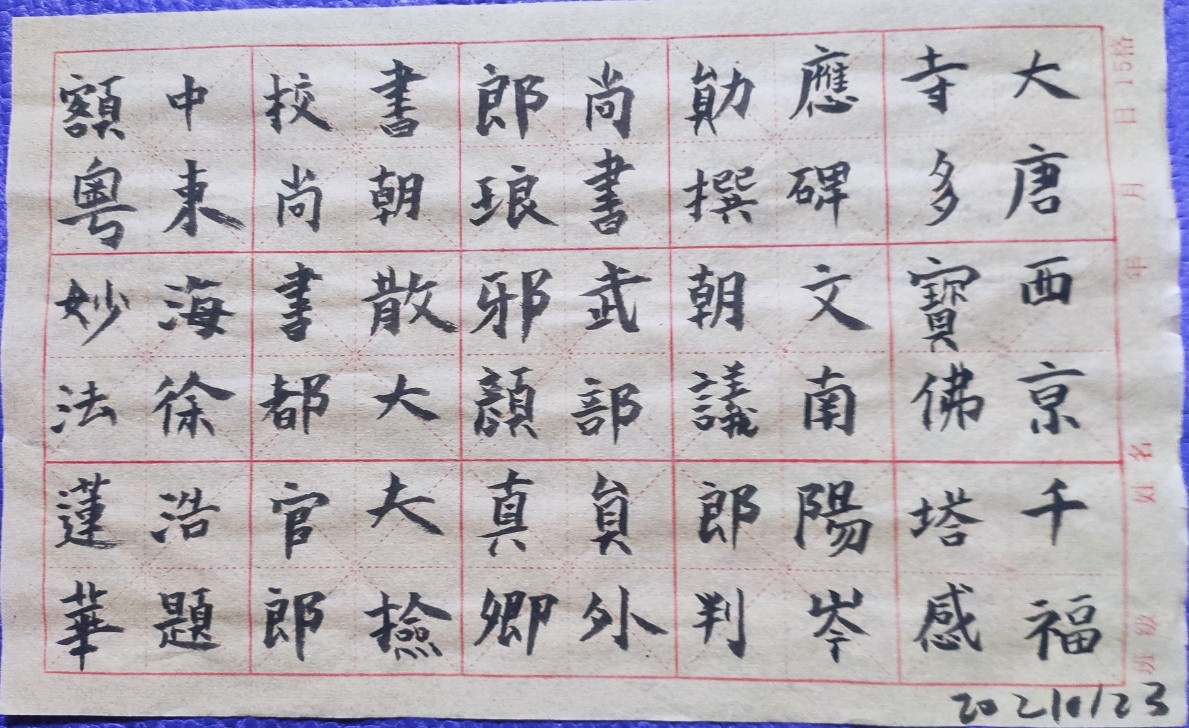 大唐西京千福
寺多寶佛塔感
應碑文南陽岑
勛撰朝議郎判
尚書武部員外
郎琅邪顏真卿
書朝散大夫撿
校尚書都官郎
中東海徐浩題
額粤妙法蓮華
班级 姓名 年 月 日 15格
20210123